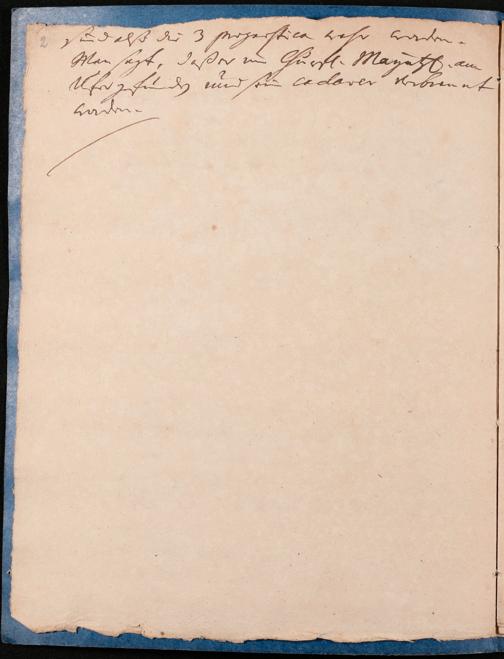 2 sind alß die 3 prognostica wahr worden.
Man sagt, daß er im Churf. Mayntz. am
Ufer gefunden und sein cadaver verbrennt
worden.